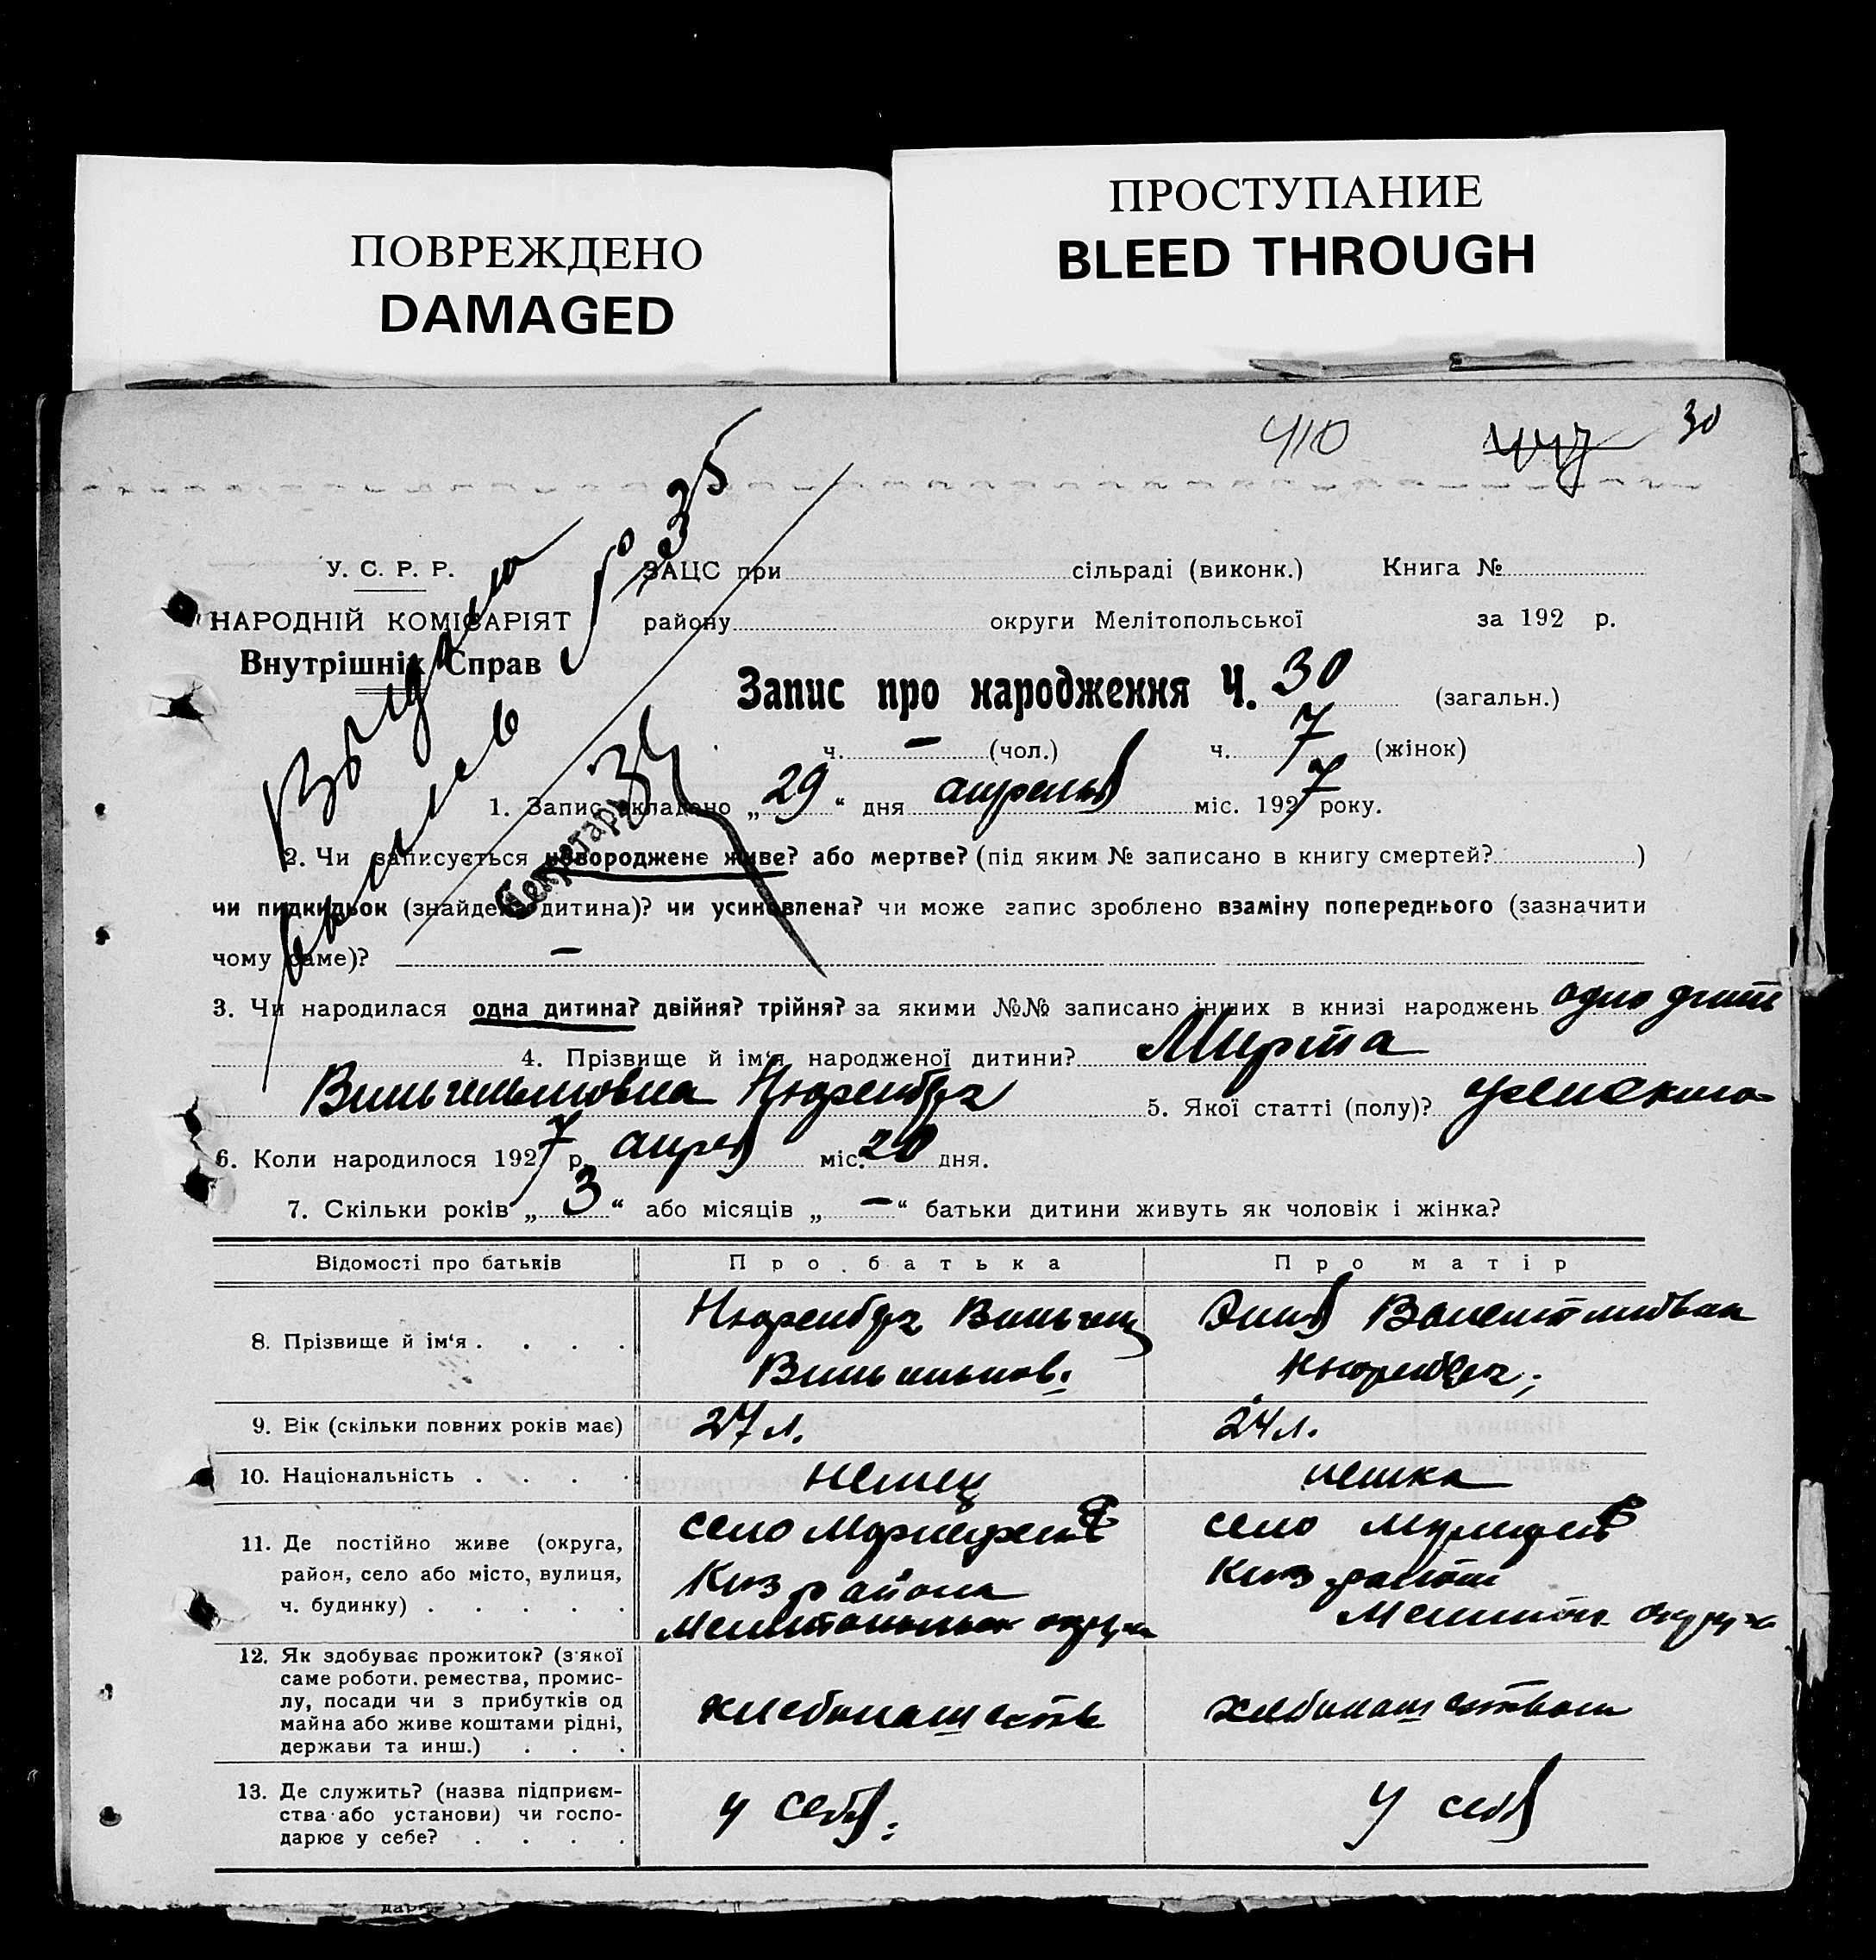 ПОВРЕЖДЕНО
DAMAGED
ПРОСТУПАНИЕ
BLEED THROUGH
410
30
У. С. Р. Р.
НАРОДНІЙ КОМІСАРІЯТ
Внутрішніх Справ
ЗАЦС при сільраді (виконк.) Книга №
району округи Мелітопольської за 192 р.
Выдана
выпись
№ 335
Секретарь
Запис про народження Ч. 30 (загальн.)
ч. — (чол.) ч. 7 (жінок)
1. Запис складено „ 29 “ дня апреля міс. 1927 року.
2. Чи записується новороджене живе? або мертве? (під яким № записано в книгу смертей? )
чи пидкидьок (знайдена дитина)? чи усиновлена? чи може запис зроблено взаміну попереднього (зазначити
чому саме)? —
3. Чи народилася одна дитина? двійня? трійня? за якими №№ записано інших в книзі народжень одно дитя
4. Прізвище й ім‘я народженої дитини? Мирта
Вильгельмовна Нюренберг 5. Якої статті (полу)? женского
6. Коли народилося 1927 р. апреля міс. 20 дня.
7. Скільки років „ 3 “ або місяців „ — “ батьки дитини живуть як чоловік і жінка?
Відомості про батьків Про батька Про матір
8. Прізвище й ім‘я . . . . Нюренберг Вильгельм
Вильгельмов.
Валентиновна
Нюренберг
9. Вік (скільки повних років має) 27 л. 24 л.
10. Національність . . . . немец немка
11. Де постійно живе (округа,
район, село або місто, вулиця,
ч. будинку) . . . . .
село
района
Мелитопольск округа
село
района
Мелитоп. округа
12. Як здобуває прожиток? (з якої
саме роботи. ремества, промис-
лу, посади чи з прибутків од
майна або живе коштами рідні,
держави та инш.) . . .
хлебопашеств
хлебопашеством
13. Де служить? (назва підприєм-
ства або установи) чи госпо-
дарює у себе? . . . .
у себя
у себя